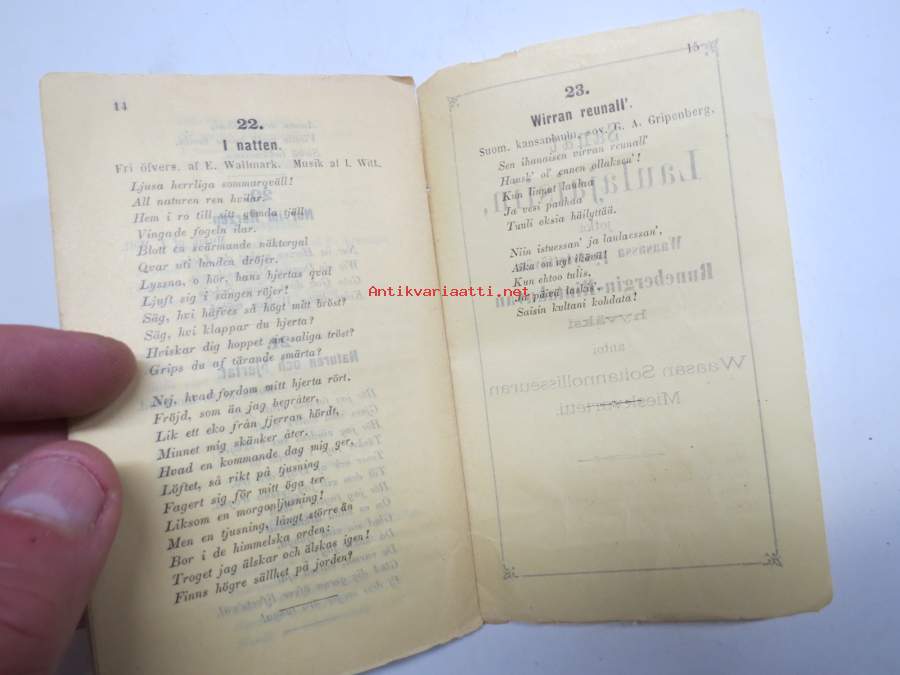 14
22.
I natten.
Fri öfvers. af E. Wallmark. Musik af I. Witt.
Ljusa herrliga sommarqväll!
All naturen ren hvilar.
Hem i ro till sitt gömda tjäll
Vingade fogeln ilar.
Blott en svärmande näktergal
Qvar uti lunden dröjer.
Lyssna, o hör, hans hjertas qval
Ljuft sig i sången röjer!
Säg, hvi häfves så högt mitt bröst?
Säg, hvi klappar du hjerta?
Hviskar dig hoppet sin saliga tröst?
Grips du af tärande smärta?
Nej, hvad fordom mitt hjerta rört,
Fröjd, som än jag begråter,
Lik ett eko från fjerran hördt,
Minnet mig skänker åter.
Hvad en kommande dag mig ger,
Löftet, så rikt på tjusning
Fagert sig för mitt öga ter
Liksom en morgonljusning!
Men en tjusning, långt större än
Bor i de himmelska orden:
Troget jag älskar och älskas igen!
Finns högre sällhet på jorden?
15
23.
Wirran reunall'.
Suom. kansanlaulu, sov. G. A. Gripenberg.
Sen ihanaisen virran reunall'
Hausk' ol' ennen ollaksen'!
Kun linnut laulaa
Ja vesi pauhaa
Tuuli oksia häilyttää.
Niin istuessan' ja laulaessan',
Aika on nyt ikävä!
Kun ehtoo tulis,
Ja päivä laskis,
Saisin kultani kohdata!
Antikvariaatti.net
Sanat
Lauluihin,
jotka
Waasassa
Runebergin
hyväksi
antoi
Waasan Soitannollisseuran
Mieskvartetti.
Naturen och hjertat.